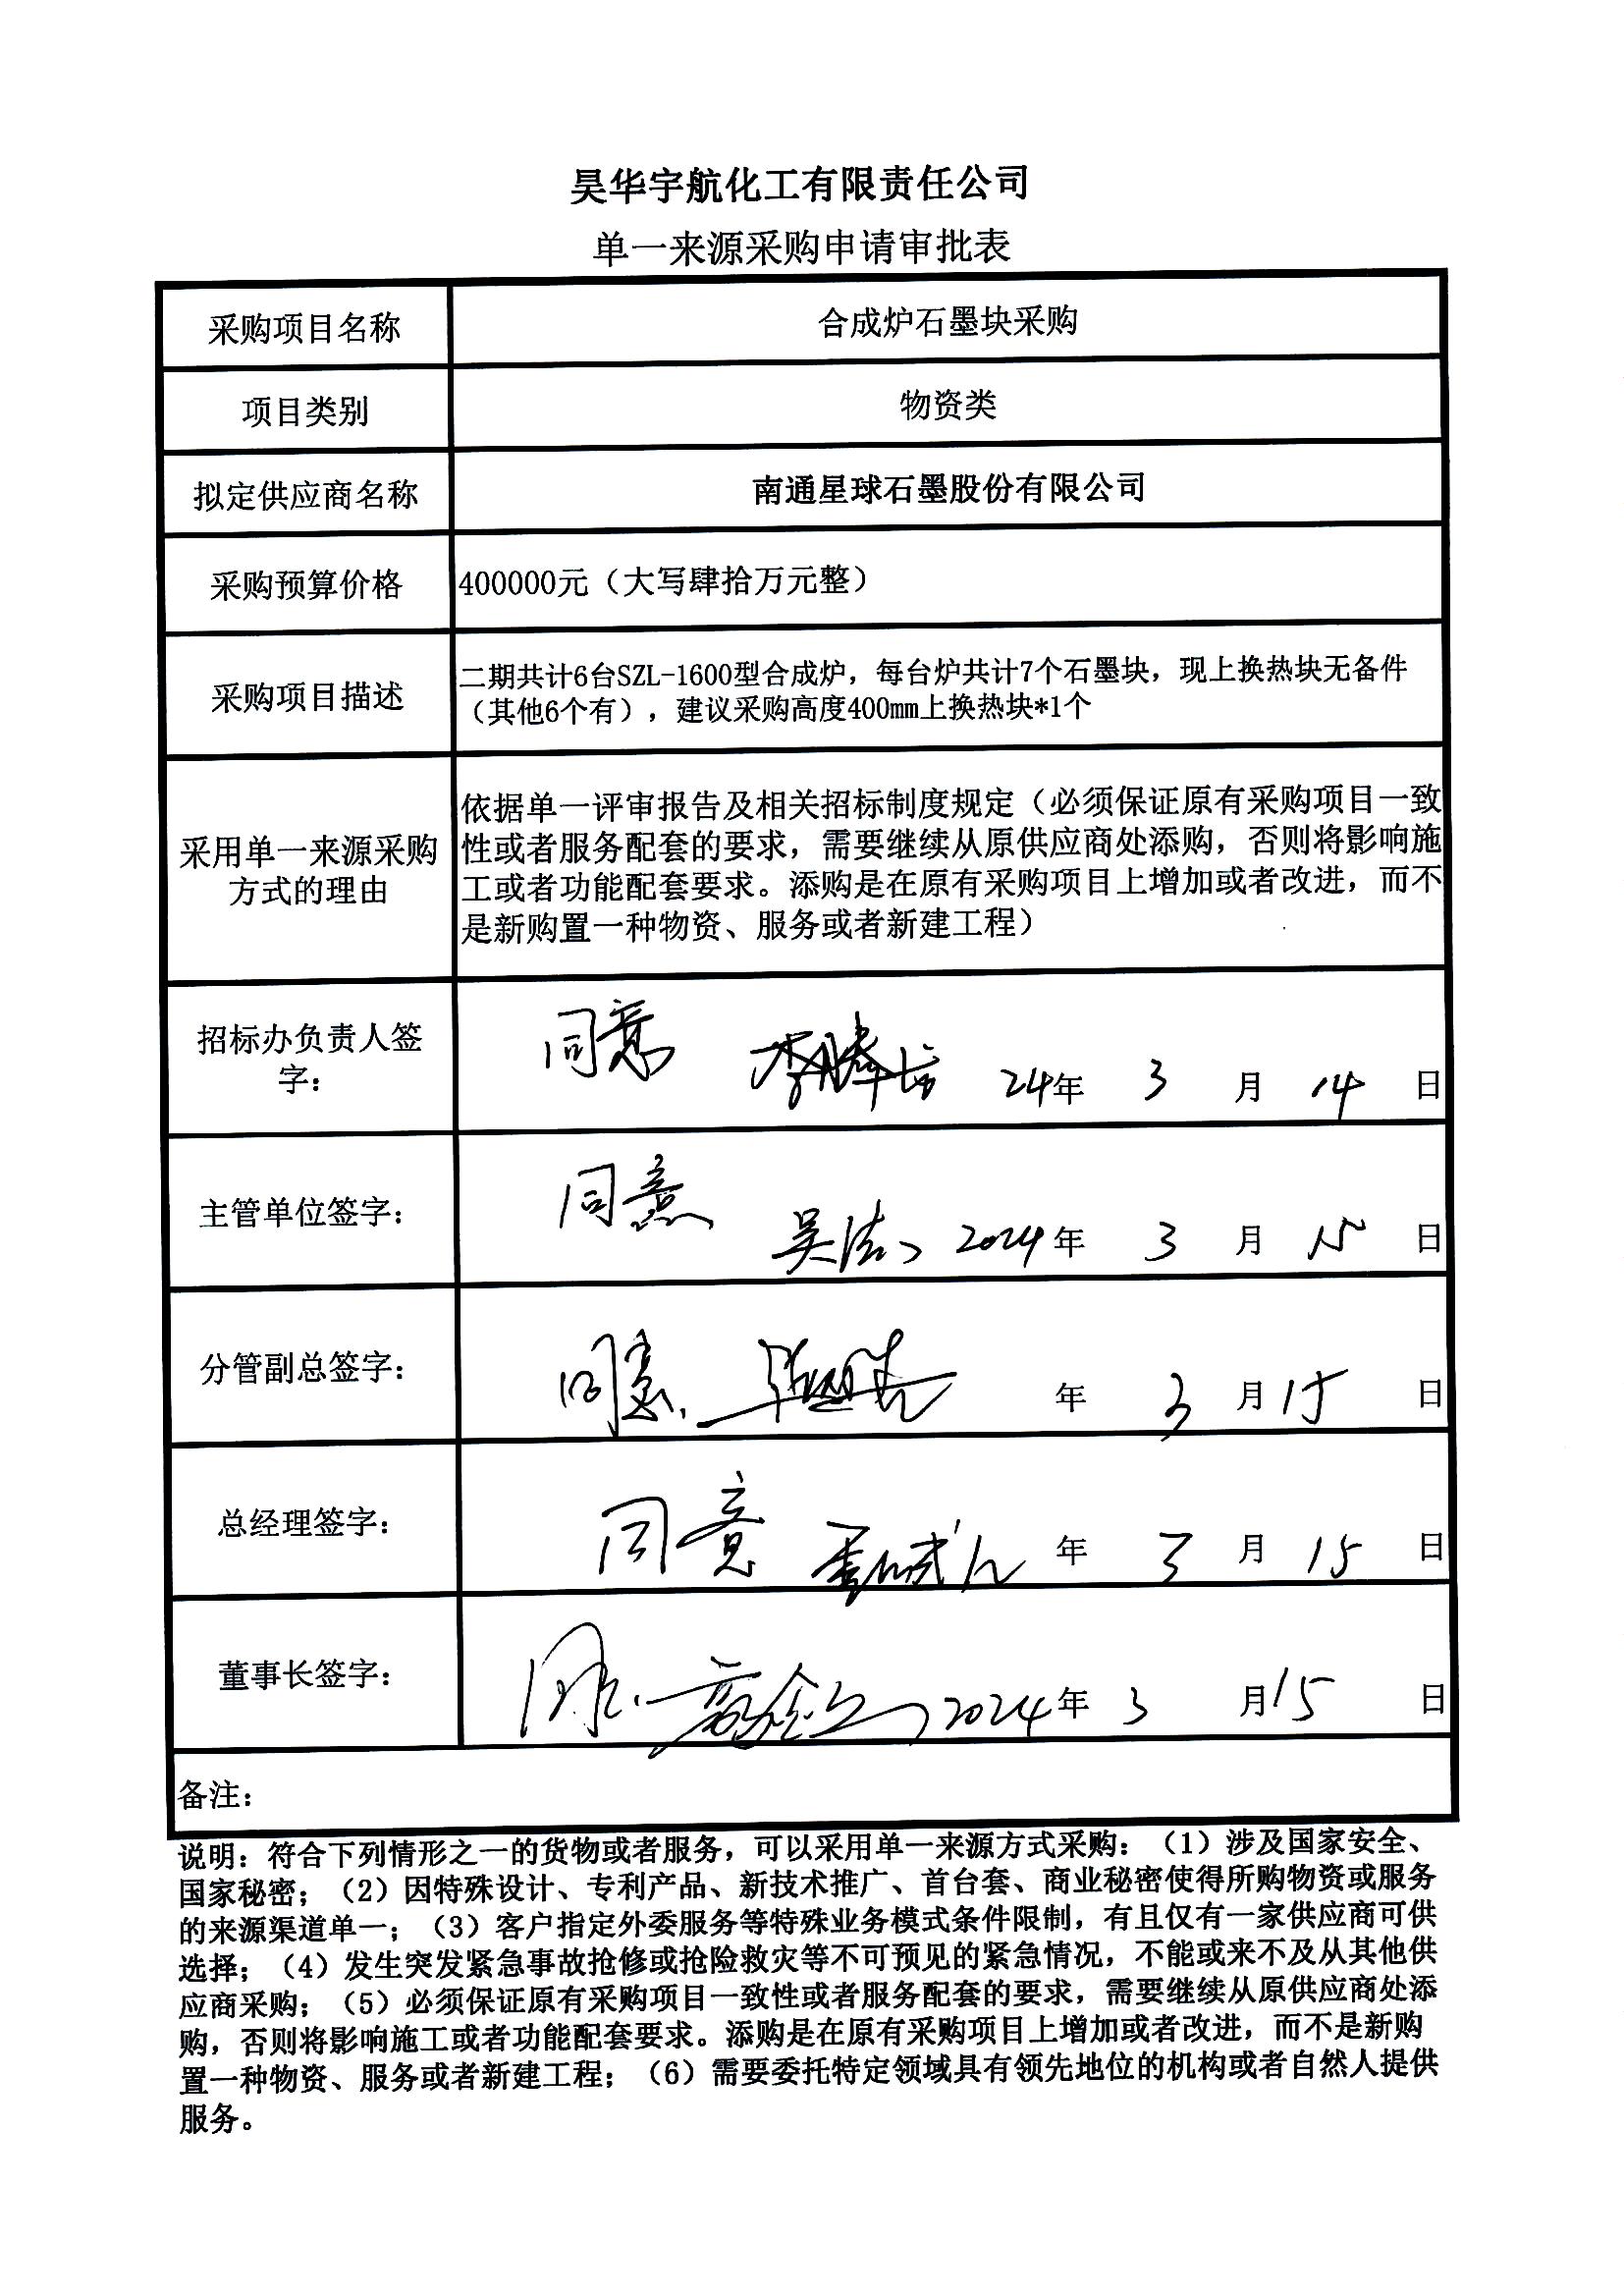 昊华宇航化工有限责任公司
单一来源采购申请审批表
采购项目名称
合成炉石墨块采购
项目类别
物资类
拟定供应商名称
南通星球石墨股份有限公司
采购预算价格
400000元（大写肆拾万元整）
采购项目描述
二期共计6台SZL-1600型合成炉，每台炉共计7个石墨块，现上换热块无备件
（其他6个有），建议采购高度400mm上换热块*1个
采用单一来源采购
方式的理由
依据单一评审报告及相关招标制度规定（必须保证原有采购项目一致
性或者服务配套的要求，需要继续从原供应商处添购，否则将影响施
工或者功能配套要求。添购是在原有采购项目上增加或者改进，而不
是新购置一种物资、服务或者新建工程）
招标办负责人签
字：
同意 24年 3 月 14 日
主管单位签字：
同意 2024年 3 月 15 日
分管副总签字：
同意 年 3 月 15 日
总经理签字：
同意 年 3 月 15 日
董事长签字：
2024年 3 月 15 日
备注：
说明：符合下列情形之一的货物或者服务，可以采用单一来源方式采购：（1）涉及国家安全、
国家秘密；（2）因特殊设计、专利产品、新技术推广、首台套、商业秘密使得所购物资或服务
的来源渠道单一；（3）客户指定外委服务等特殊业务模式条件限制，有且仅有一家供应商可供
选择；（4）发生突发紧急事故抢修或抢险救灾等不可预见的紧急情况，不能或来不及从其他供
应商采购；（5）必须保证原有采购项目一致性或者服务配套的要求，需要继续从原供应商处添
购，否则将影响施工或者功能配套要求。添购是在原有采购项目上增加或者改进，而不是新购
置一种物资、服务或者新建工程；（6）需要委托特定领域具有领先地位的机构或者自然人提供
服务。